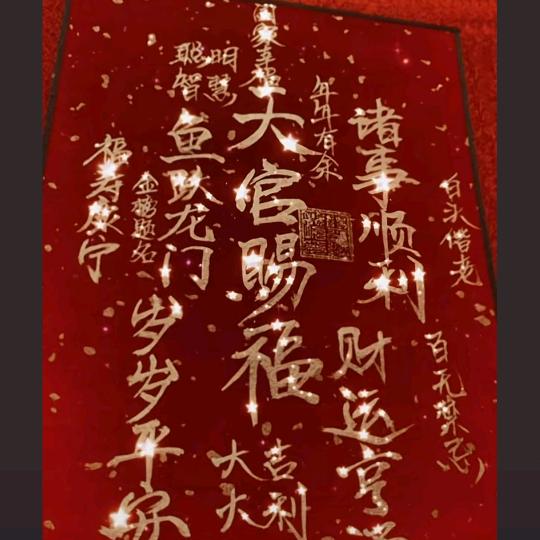 白头偕老
百无禁忌
诸事顺利
财运亨
年年有余
家幸福
天官赐福
大吉
大利
聪明
智慧
鱼跃龙门
岁岁平安
金榜题名
福寿康宁